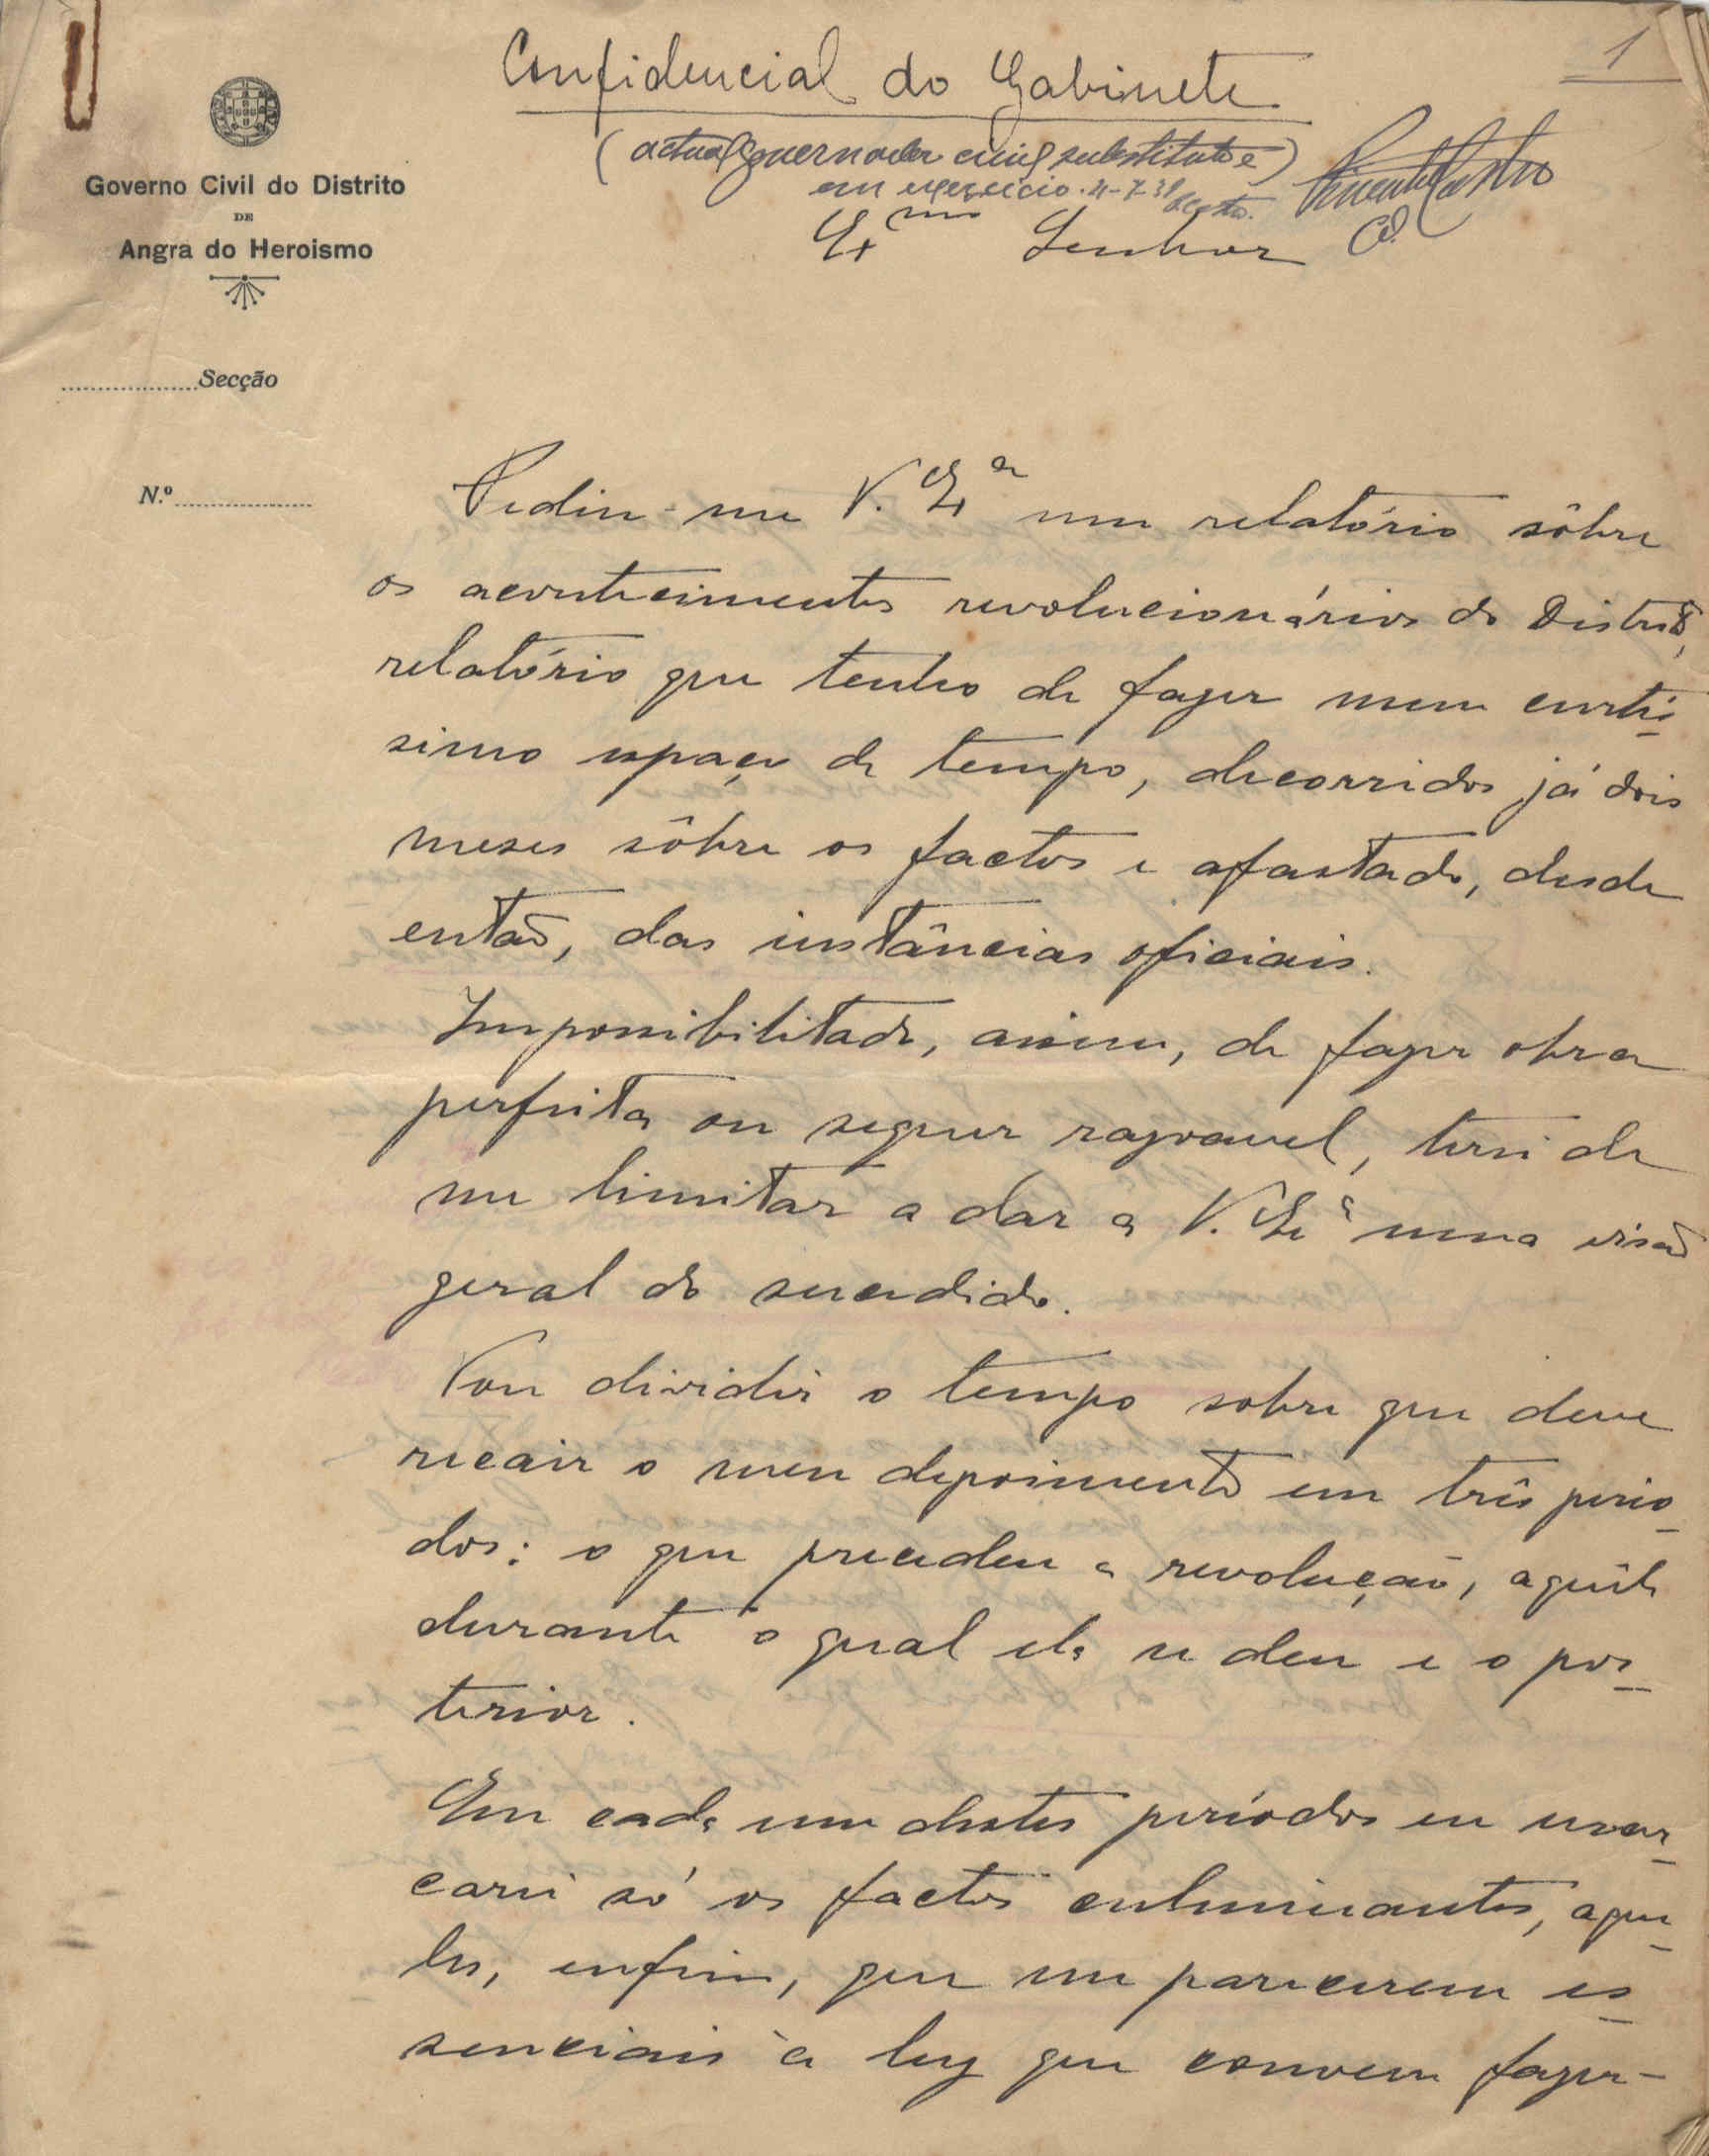 1
Confidencial do Gabinete
(actual governador civil substituto e)
em exercicio. 21-7-31
Governo Civil do Distrito
DE
Angra do Heroismo
Exmo Senhor
Secção
N.º
Pediu-me V. Exa um relatório sôbre
os acontecimentos revolucionários do Distrito,
relatório que tenho de fazer num curtís-
simo espaço de tempo, decorridos já dois
meses sôbre os factos e afastado, desde
então, das instâncias oficiais.
Impossibilitado, assim, de fazer obra
perfeita ou sequer razoavel, terei de
me limitar a dar a V. Exa uma visão
geral do sucedido.
Vou dividir o tempo sobre que deve
recair o meu depoimento em três perío-
dos: o que precedeu a revolução, aquêle
durante o qual ela se deu e o pos-
terior.
Em cada um destes períodos eu mar-
carei só os factos culminantes, aque-
les, enfim, que me parecerem es-
senciais à luz que convem fazer-